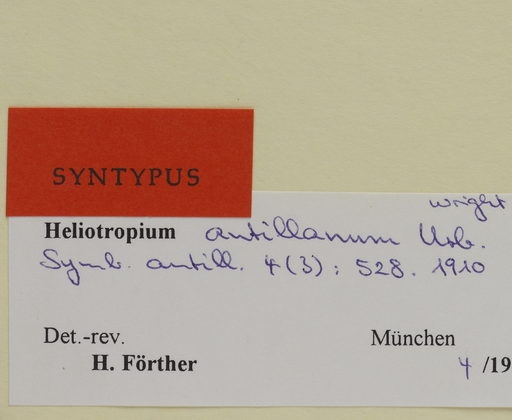 SYNTYPUS
wright
Heliotropium antillanum Urb.
Symb. antill. 4(3): 528. 1910
Det.-rev. München
H. Förther 4 /19